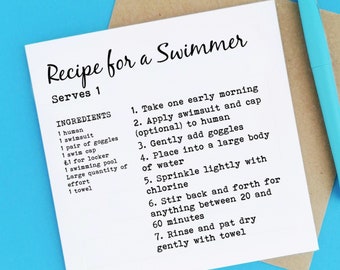 Recipe for a Swimmer
Serves 1
INGREDIENTS
1 human
1 swimsuit
1 pair of goggles
1 swim cap
£1 for locker
1 swimming pool
Large quantity of
effort
1 towel
1. Take one early morning
2. Apply swimsuit and cap
(optional) to human
3. Gently add goggles
4. Place into a large body
of water
5. Sprinkle lightly with
chlorine
6. Stir back and forth for
anything between 20 and
60 minutes
7. Rinse and pat dry
gently with towel